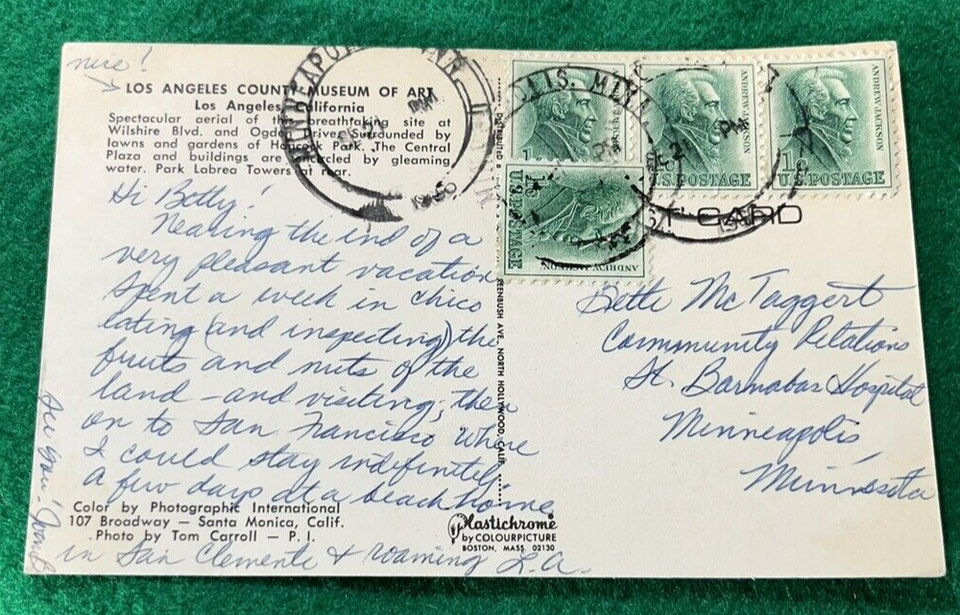 nice!
LOS ANGELES COUNTY MUSEUM OF ART
Los Angeles, California
Spectacular aerial of the breathtaking site at
Wilshire Blvd. and Ogden Drive. Surrounded by
lawns and gardens of Hancock Park. The Central
Plaza and buildings are encircled by gleaming
water. Park Labrea Towers at rear.
Hi Betty!
Nearing the end of a
very pleasant vacation
Spent a week in Chico
eating (and inspecting) the
fruits and nuts of the
land - and visiting; then
on to San Francisco where
I could stay indefinitely
a few days at a beach home
in San Clemente & roaming L.A.
See you!
Color by Photographic International
107 Broadway — Santa Monica, Calif.
Photo by Tom Carroll — P. I.
Distributed
GREENBUSH AVE. NORTH HOLLYWOOD, CALIF.
Plastichrome
by COLOURPICTURE
BOSTON, MASS. 02130
MINNEAPOLIS, MINN
PM
MINN
PM
1¢
U.S. POSTAGE
ANDREW JACKSON
U.S. POSTAGE
ANDREW JACKSON
1¢
U.S. POSTAGE
ANDREW JACKSON
1¢
U.S. POSTAGE
ANDREW JACKSON
POST CARD
Bette McTaggert
Community Relations
St. Barnabas Hospital
Minneapolis,
Minnesota